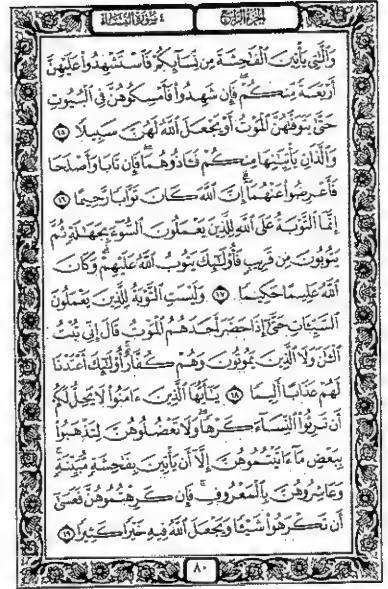 الجزء الرابع
٤ سورة النساء
وَالَّتِي يَأْتِينَ الْفَاحِشَةَ مِن نِّسَائِكُمْ فَاسْتَشْهِدُوا عَلَيْهِنَّ
أَرْبَعَةً مِّنكُمْ فَإِن شَهِدُوا فَأَمْسِكُوهُنَّ فِي الْبُيُوتِ
حَتَّىٰ يَتَوَفَّاهُنَّ الْمَوْتُ أَوْ يَجْعَلَ اللَّهُ لَهُنَّ سَبِيلًا ١٥
وَالَّذَانِ يَأْتِيَانِهَا مِنكُمْ فَآذُوهُمَا فَإِن تَابَا وَأَصْلَحَا
فَأَعْرِضُوا عَنْهُمَا إِنَّ اللَّهَ كَانَ تَوَّابًا رَّحِيمًا ١٦
إِنَّمَا التَّوْبَةُ عَلَى اللَّهِ لِلَّذِينَ يَعْمَلُونَ السُّوءَ بِجَهَالَةٍ ثُمَّ
يَتُوبُونَ مِن قَرِيبٍ فَأُولَٰئِكَ يَتُوبُ اللَّهُ عَلَيْهِمْ وَكَانَ
اللَّهُ عَلِيمًا حَكِيمًا ١٧ وَلَيْسَتِ التَّوْبَةُ لِلَّذِينَ يَعْمَلُونَ
السَّيِّئَاتِ حَتَّىٰ إِذَا حَضَرَ أَحَدَهُمُ الْمَوْتُ قَالَ إِنِّي تُبْتُ
الْآنَ وَلَا الَّذِينَ يَمُوتُونَ وَهُمْ كُفَّارٌ أُولَٰئِكَ أَعْتَدْنَا
لَهُمْ عَذَابًا أَلِيمًا ١٨ يَا أَيُّهَا الَّذِينَ ءَامَنُوا لَا يَحِلُّ لَكُمْ
أَن تَرِثُوا النِّسَاءَ كَرْهًا وَلَا تَعْضُلُوهُنَّ لِتَذْهَبُوا
بِبَعْضِ مَا ءَاتَيْتُمُوهُنَّ إِلَّا أَن يَأْتِينَ بِفَاحِشَةٍ مُّبَيِّنَةٍ
وَعَاشِرُوهُنَّ بِالْمَعْرُوفِ فَإِن كَرِهْتُمُوهُنَّ فَعَسَىٰ
أَن تَكْرَهُوا شَيْئًا وَيَجْعَلَ اللَّهُ فِيهِ خَيْرًا كَثِيرًا ١٩
٨٠